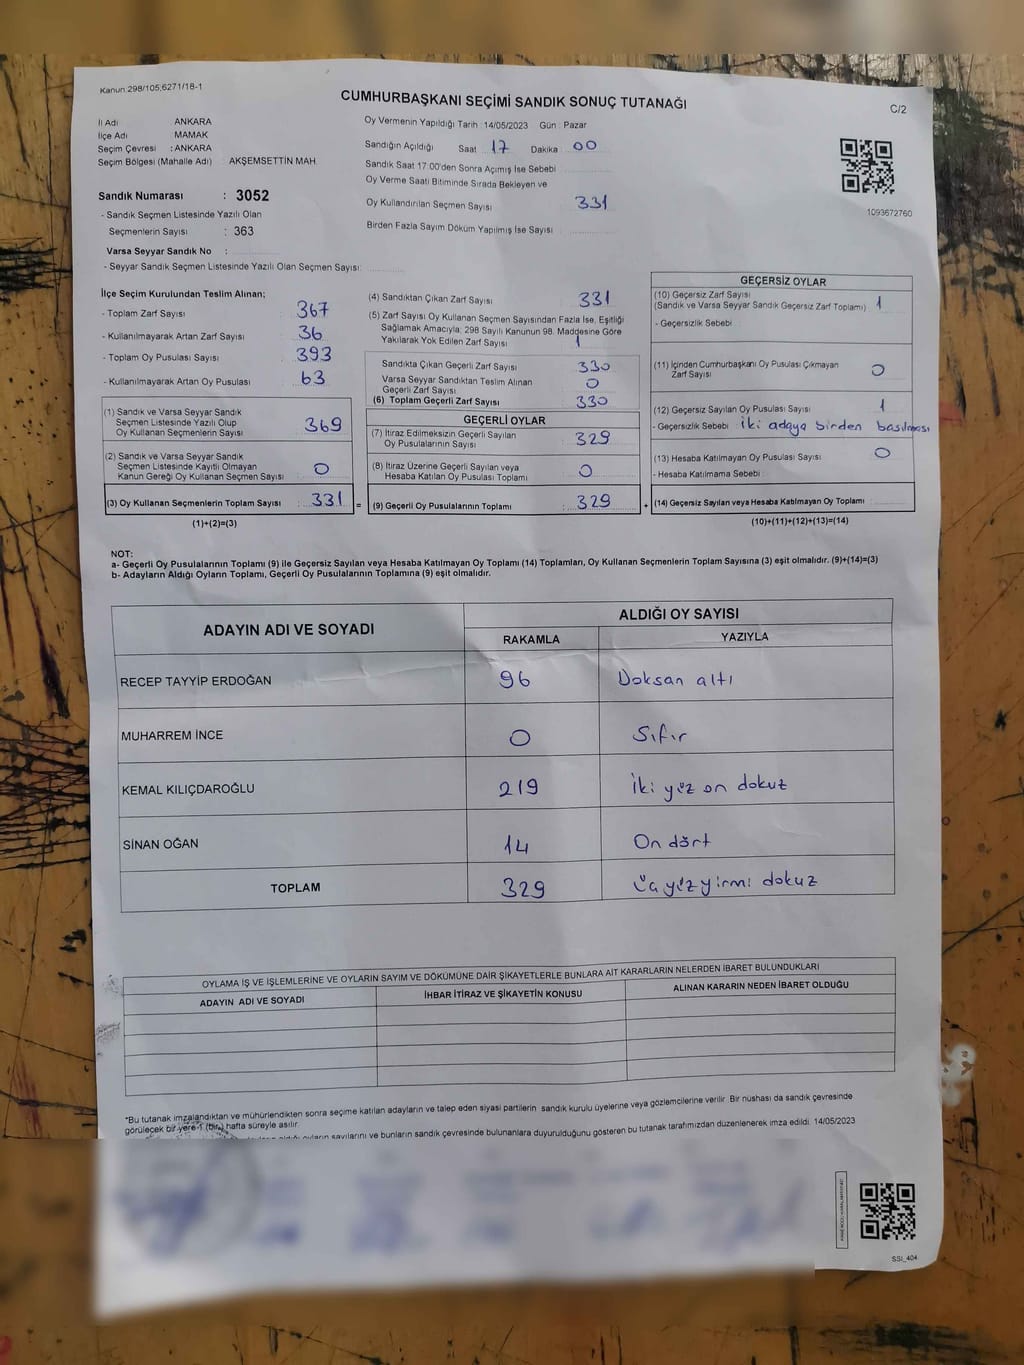 Kanun 298/105,6271/18-1
CUMHURBAŞKANI SEÇİMİ SANDIK SONUÇ TUTANAĞI
C/2
İl Adı ANKARA
İlçe Adı MAMAK
Seçim Çevresi : ANKARA
Seçim Bölgesi (Mahalle Adı) AKŞEMSETTİN MAH.
Sandık Numarası : 3052
- Sandık Seçmen Listesinde Yazılı Olan
Seçmenlerin Sayısı : 363
Varsa Seyyar Sandık No :
- Seyyar Sandık Seçmen Listesinde Yazılı Olan Seçmen Sayısı:
Oy Vermenin Yapıldığı Tarih : 14/05/2023 Gün : Pazar
Sandığın Açıldığı Saat 17 Dakika 00
Sandık Saat 17:00'den Sonra Açımış İse Sebebi
Oy Verme Saati Bitiminde Sırada Bekleyen ve
Oy Kullandırılan Seçmen Sayısı 331
Birden Fazla Sayım Döküm Yapılmış İse Sayısı
1093672760
İlçe Seçim Kurulundan Teslim Alınan;
- Toplam Zarf Sayısı 367
- Kullanılmayarak Artan Zarf Sayısı 36
- Toplam Oy Pusulası Sayısı 393
- Kullanılmayarak Artan Oy Pusulası 63
(1) Sandık ve Varsa Seyyar Sandık
Seçmen Listesinde Yazılı Olup
Oy Kullanan Seçmenlerin Sayısı 369
(2) Sandık ve Varsa Seyyar Sandık
Seçmen Listesinde Kayıtlı Olmayan
Kanun Gereği Oy Kullanan Seçmen Sayısı 0
(3) Oy Kullanan Seçmenlerin Toplam Sayısı 331 =
(1)+(2)=(3)
(4) Sandıktan Çıkan Zarf Sayısı 331
(5) Zarf Sayısı Oy Kullanan Seçmen Sayısından Fazla İse, Eşitliği
Sağlamak Amacıyla; 298 Sayılı Kanunun 98. Maddesine Göre
Yakılarak Yok Edilen Zarf Sayısı 1
Sandıkta Çıkan Geçerli Zarf Sayısı 330
Varsa Seyyar Sandıktan Teslim Alınan
Geçerli Zarf Sayısı 0
(6) Toplam Geçerli Zarf Sayısı 330
GEÇERLİ OYLAR
(7) İtiraz Edilmeksizin Geçerli Sayılan
Oy Pusulalarının Sayısı 329
(8) İtiraz Üzerine Geçerli Sayılan veya
Hesaba Katılan Oy Pusulası Toplamı 0
(9) Geçerli Oy Pusulalarının Toplamı : 329 +
GEÇERSİZ OYLAR
(10) Geçersiz Zarf Sayısı
(Sandık ve Varsa Seyyar Sandık Geçersiz Zarf Toplamı) 1
- Geçersizlik Sebebi
(11) İçinden Cumhurbaşkanı Oy Pusulası Çıkmayan
Zarf Sayısı 0
(12) Geçersiz Sayılan Oy Pusulası Sayısı 1
- Geçersizlik Sebebi iki adaya birden basılması
(13) Hesaba Katılmayan Oy Pusulası Sayısı 0
- Hesaba Katılmama Sebebi
(14) Geçersiz Sayılan veya Hesaba Katılmayan Oy Toplamı
(10)+(11)+(12)+(13)=(14)
NOT:
a- Geçerli Oy Pusulalarının Toplamı (9) ile Geçersiz Sayılan veya Hesaba Katılmayan Oy Toplamı (14) Toplamları, Oy Kullanan Seçmenlerin Toplam Sayısına (3) eşit olmalıdır. (9)+(14)=(3)
b- Adayların Aldığı Oyların Toplamı, Geçerli Oy Pusulalarının Toplamına (9) eşit olmalıdır.
ADAYIN ADI VE SOYADI ALDIĞI OY SAYISI
RAKAMLA YAZIYLA
RECEP TAYYİP ERDOĞAN 96 Doksan altı
MUHARREM İNCE 0 Sıfır
KEMAL KILIÇDAROĞLU 219 İki yüz on dokuz
SİNAN OĞAN 14 On dört
TOPLAM 329 Üç yüz yirmi dokuz
OYLAMA İŞ VE İŞLEMLERİNE VE OYLARIN SAYIM VE DÖKÜMÜNE DAİR ŞİKAYETLERLE BUNLARA AİT KARARLARIN NELERDEN İBARET BULUNDUKLARI
ADAYIN ADI VE SOYADI İHBAR İTİRAZ VE ŞİKAYETİN KONUSU ALINAN KARARIN NEDEN İBARET OLDUĞU
*Bu tutanak imzalandıktan ve mühürlendikten sonra seçime katılan adayların ve talep eden siyasi partilerin sandık kurulu üyelerine veya gözlemcilerine verilir. Bir nüshası da sandık çevresinde
görülecek bir yere 1 (bir) hafta süreyle asılır.
oyların sayılarını ve bunların sandık çevresinde bulunanlara duyurulduğunu gösteren bu tutanak tarafımızdan düzenlenerek imza edildi. 14/05/2023
SSİ_404